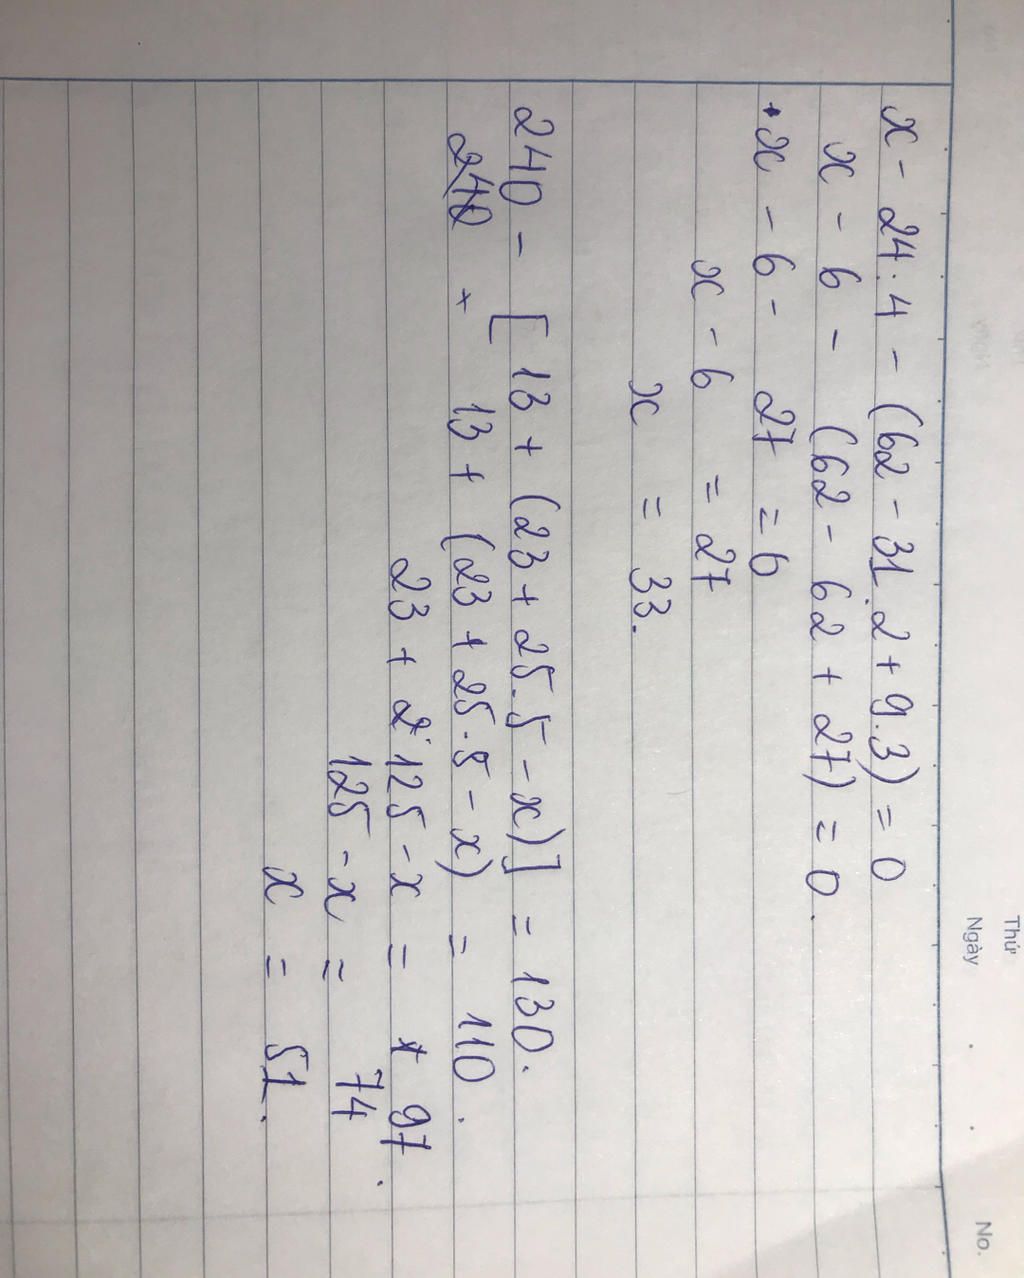 Thứ
Ngày
No.
x - 24.4 - (62 - 31.2 + 9.3) = 0
x - 6 - (62 - 62 + 27) = 0.
x - 6 - 27 = 6
x - 6 = 27
x = 33.
240 - [13 + (23 + 25.5 - x)] = 130.
240 + 13 + (23 + 25.5 - x) = 110.
23 + 2 125 - x = + 97.
125 - x = 74
x = 51.